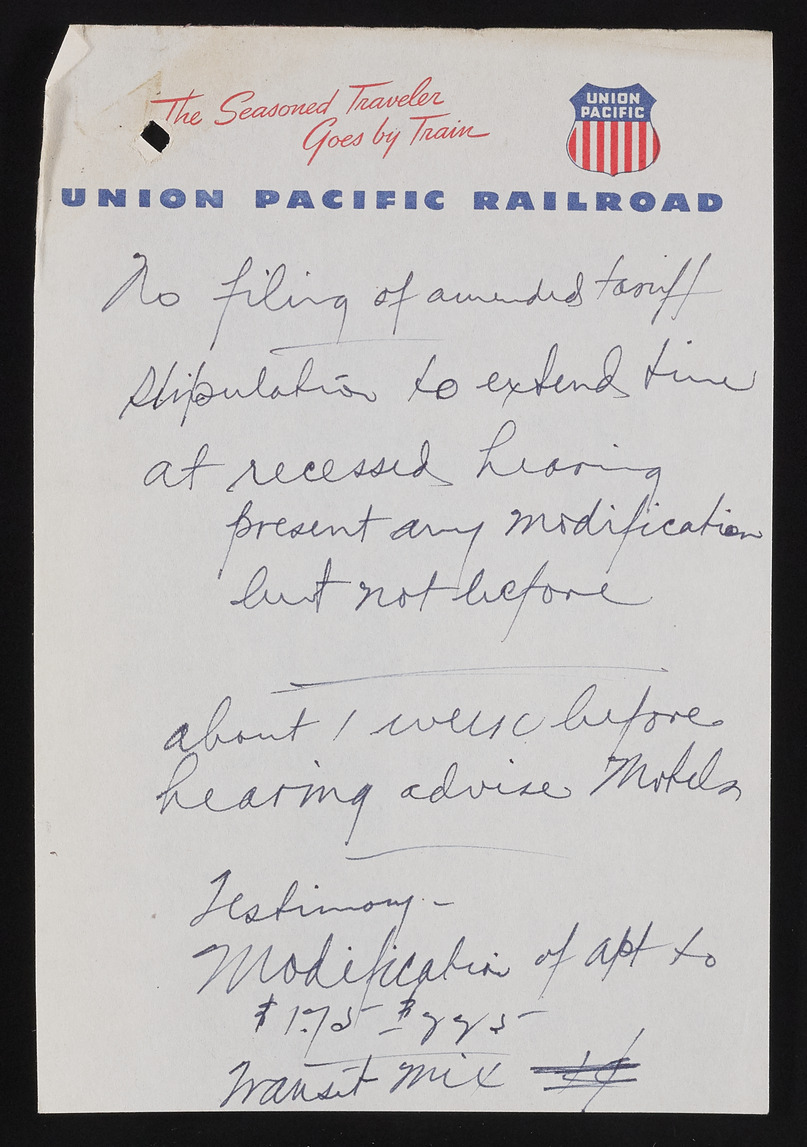 The Seasoned Traveler
Goes by Train
UNION
PACIFIC
UNION PACIFIC RAILROAD
No filing of amended tariff
Stipulation to extend time
at recessed hearing
present any modification
but not before
about 1 week before
hearing advise Motels
Testimony -
Modification of apt to
$1.75 $2.25
Transit Mix